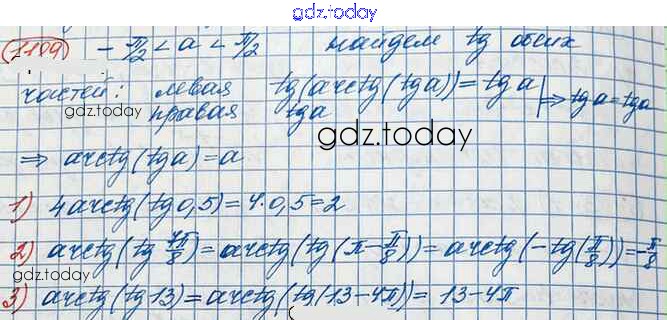 gdz.today
1109) -π/2 < a < π/2 найдем tg обеих
частей: левая tg(arctg(tga)) = tga | ⇒ tga = tga
gdz.today правая tga
gdz.today
⇒ arctg(tga) = a
1) 4arctg(tg0,5) = 4·0,5 = 2
2) arctg(tg 7π/8) = arctg(tg(π-π/8)) = arctg(-tg(π/8)) = -π/8
gdz.today
3) arctg(tg13) = arctg(tg(13-4π)) = 13-4π
gdz.today